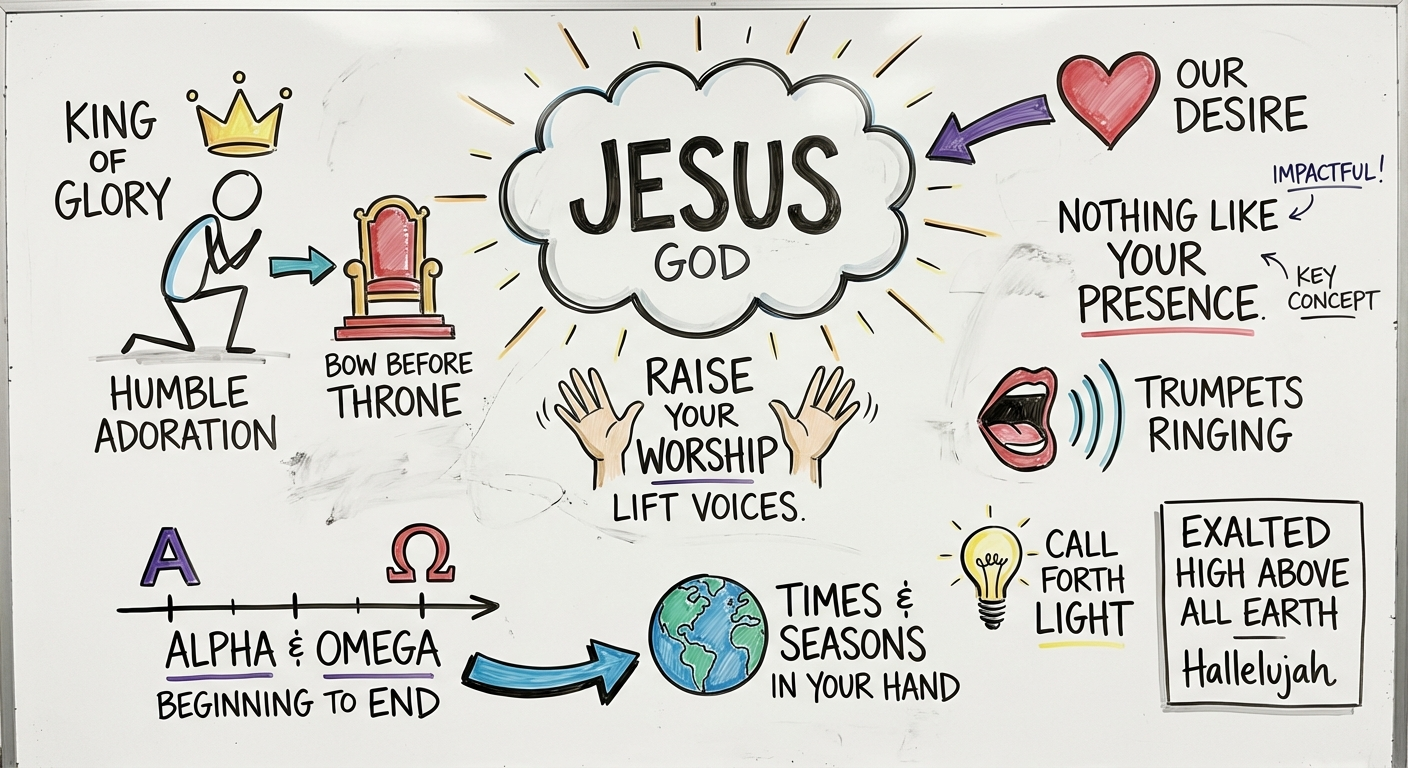 KING
OF
GLORY
HUMBLE
ADORATION
BOW BEFORE
THRONE
JESUS
GOD
RAISE
YOUR
WORSHIP
LIFT VOICES.
OUR
DESIRE
IMPACTFUL!
NOTHING LIKE
YOUR
PRESENCE.
KEY
CONCEPT
TRUMPETS
RINGING
A
Ω
ALPHA & OMEGA
BEGINNING TO END
TIMES &
SEASONS
IN YOUR HAND
CALL
FORTH
LIGHT
EXALTED
HIGH ABOVE
ALL EARTH
Hallelujah